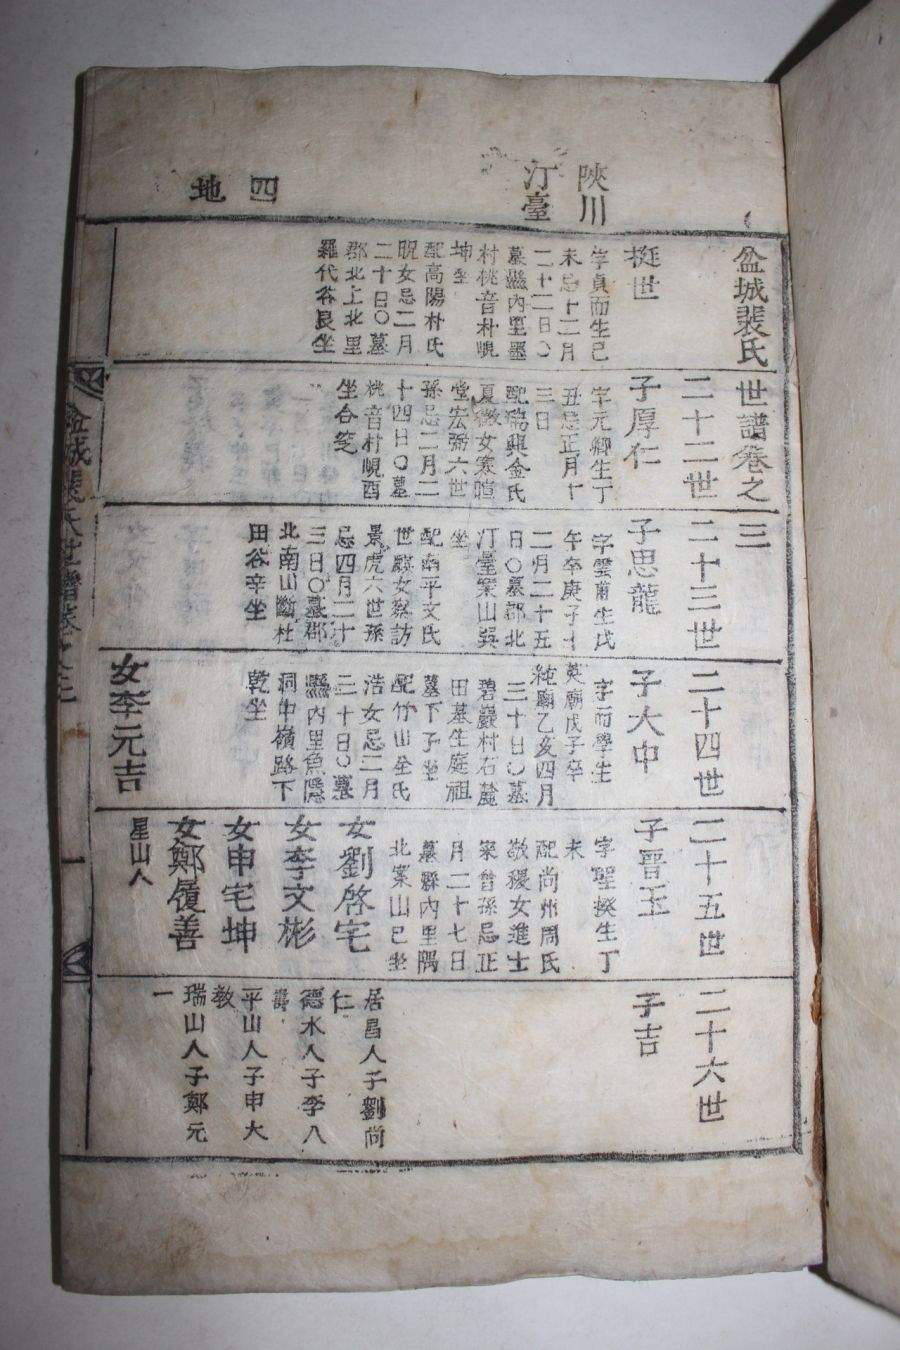 陜川
汀臺
四
地
盆城裴氏世譜卷之三
挺世
字貞而生己
未忌十二月
二十二日〇
村桃音朴峴
坤坐
配高陽朴氏
女忌二月
二十日〇墓
郡北上北里
羅代谷艮坐
二十二世
子厚仁
字元卿生丁
丑忌正月十
三日
配瑞興金氏
夏女寒暄
堂宏弼六世
孫忌二月二
十四日〇墓
桃音村峴酉
坐合窆
二十三世
子思龍
字雲甫生戊
午卒庚子十
二月二十五
日〇墓郡北
汀臺案山吳
坐
配南平文氏
世麒女察訪
景虎六世孫
忌四月二十
三日〇墓郡
北南山斷杜
田谷辛坐
二十四世
子大中
字而學生
英廟戊子卒
純廟乙亥四月
二十日〇墓
碧巖村石麓
田基生庭祖
墓下子坐
配竹山全氏
浩女忌二月
二十日〇墓
縣內里魚隱
洞中嶺路下
乾坐
女李元吉
二十五世
子晋玉
字聖揆生丁
未
配尚州周氏
敬稷女進士
宷曾孫忌正
月二十七日
墓縣內里隅
北案山巳坐
女劉啓宅
女李文彬
女申宅坤
女鄭履善
星山人
二十六世
子吉
居昌人子劉尚
仁
德水人子李八
平山人子申大
教
瑞山人子鄭元
一
盆城裴氏世譜卷之三
一